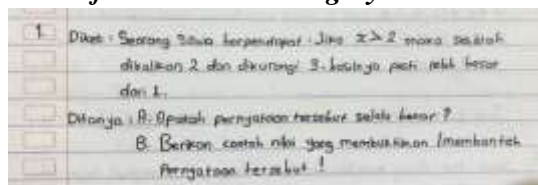 1. Diket : Seorang siswa berpendapat : Jika x > 2 maka setelah
dikalikan 2 dan dikurangi 3. hasilnya pasti lebih besar
dari 1.
Ditanya : A. Apakah pernyataan tersebut selalu benar ?
B. Berikan contoh nilai yang membuktikan / membantah
Pernyataan tersebut !